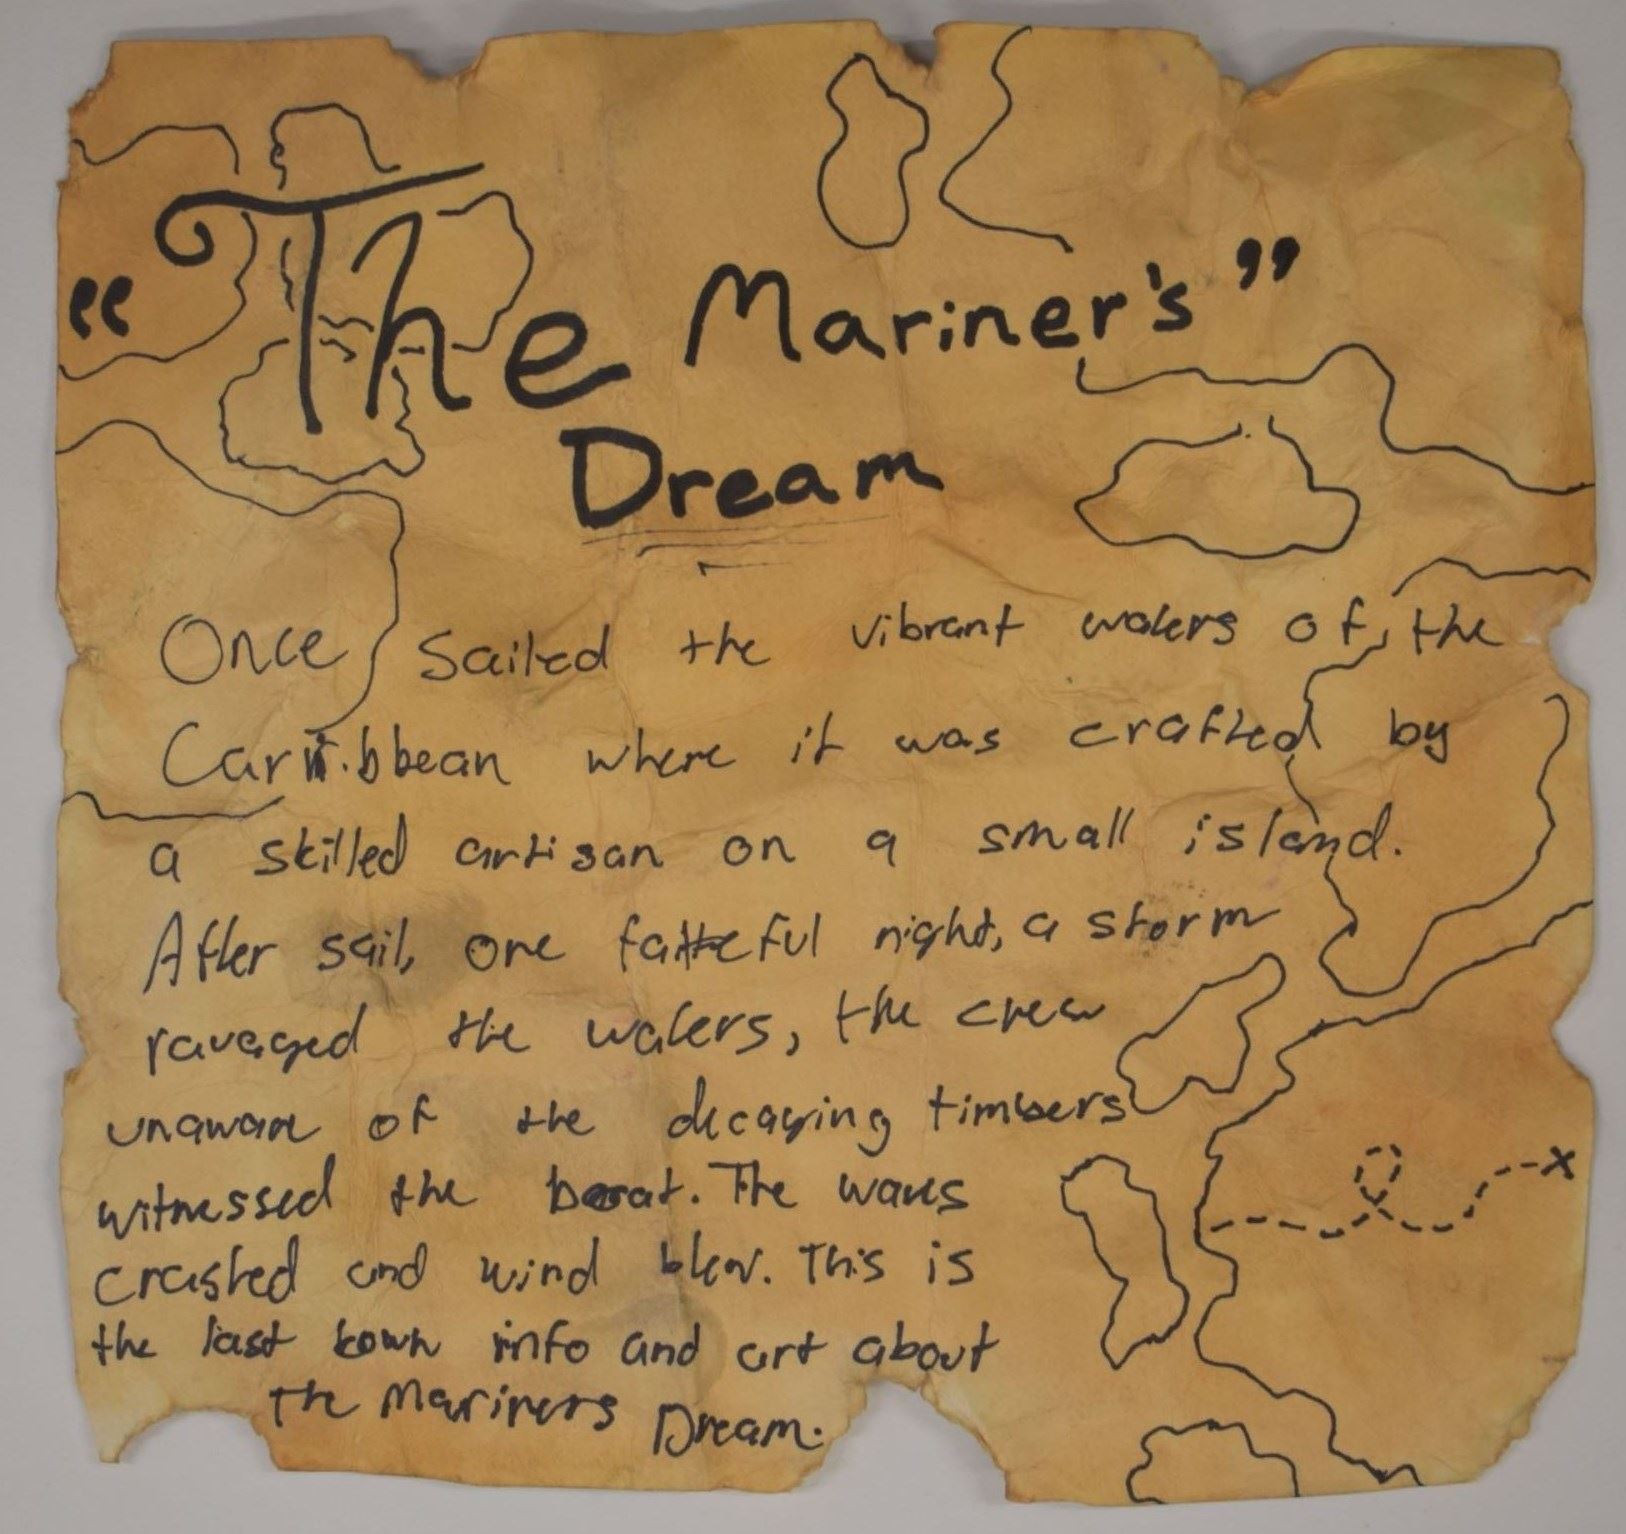 "The Mariner's"
Dream
Once sailed the vibrant waters of the
Carribbean where it was crafted by
a skilled artisan on a small island.
After sail, one fateful night, a storm
ravaged the waters, the crew
unaware of the decaying timbers
witnessed the boat. The waves
crashed and wind blew. This is
the last kown info and art about
The Mariners Dream.
x